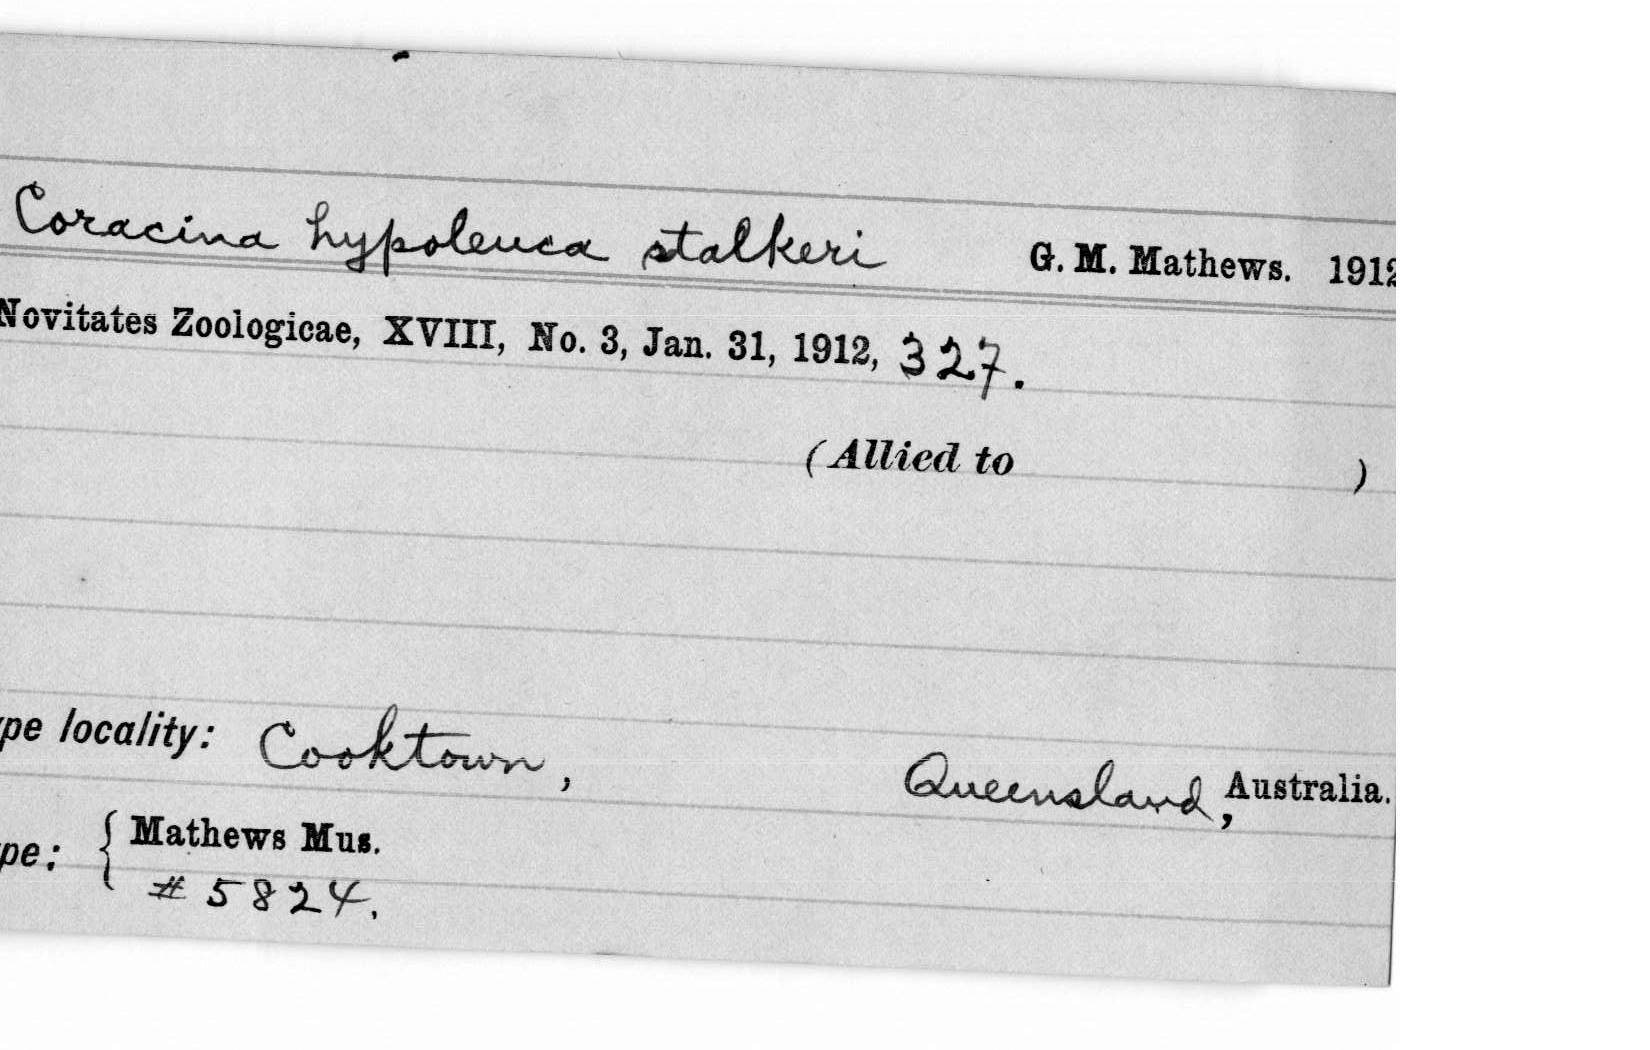 Coracina hypoleuca stalkeri G. M. Mathews. 1912
Novitates Zoologicae, XVIII, No. 3, Jan. 31, 1912, 327.
(Allied to )
ype locality: Cooktown, Queensland, Australia.
ype: { Mathews Mus.
# 5824.